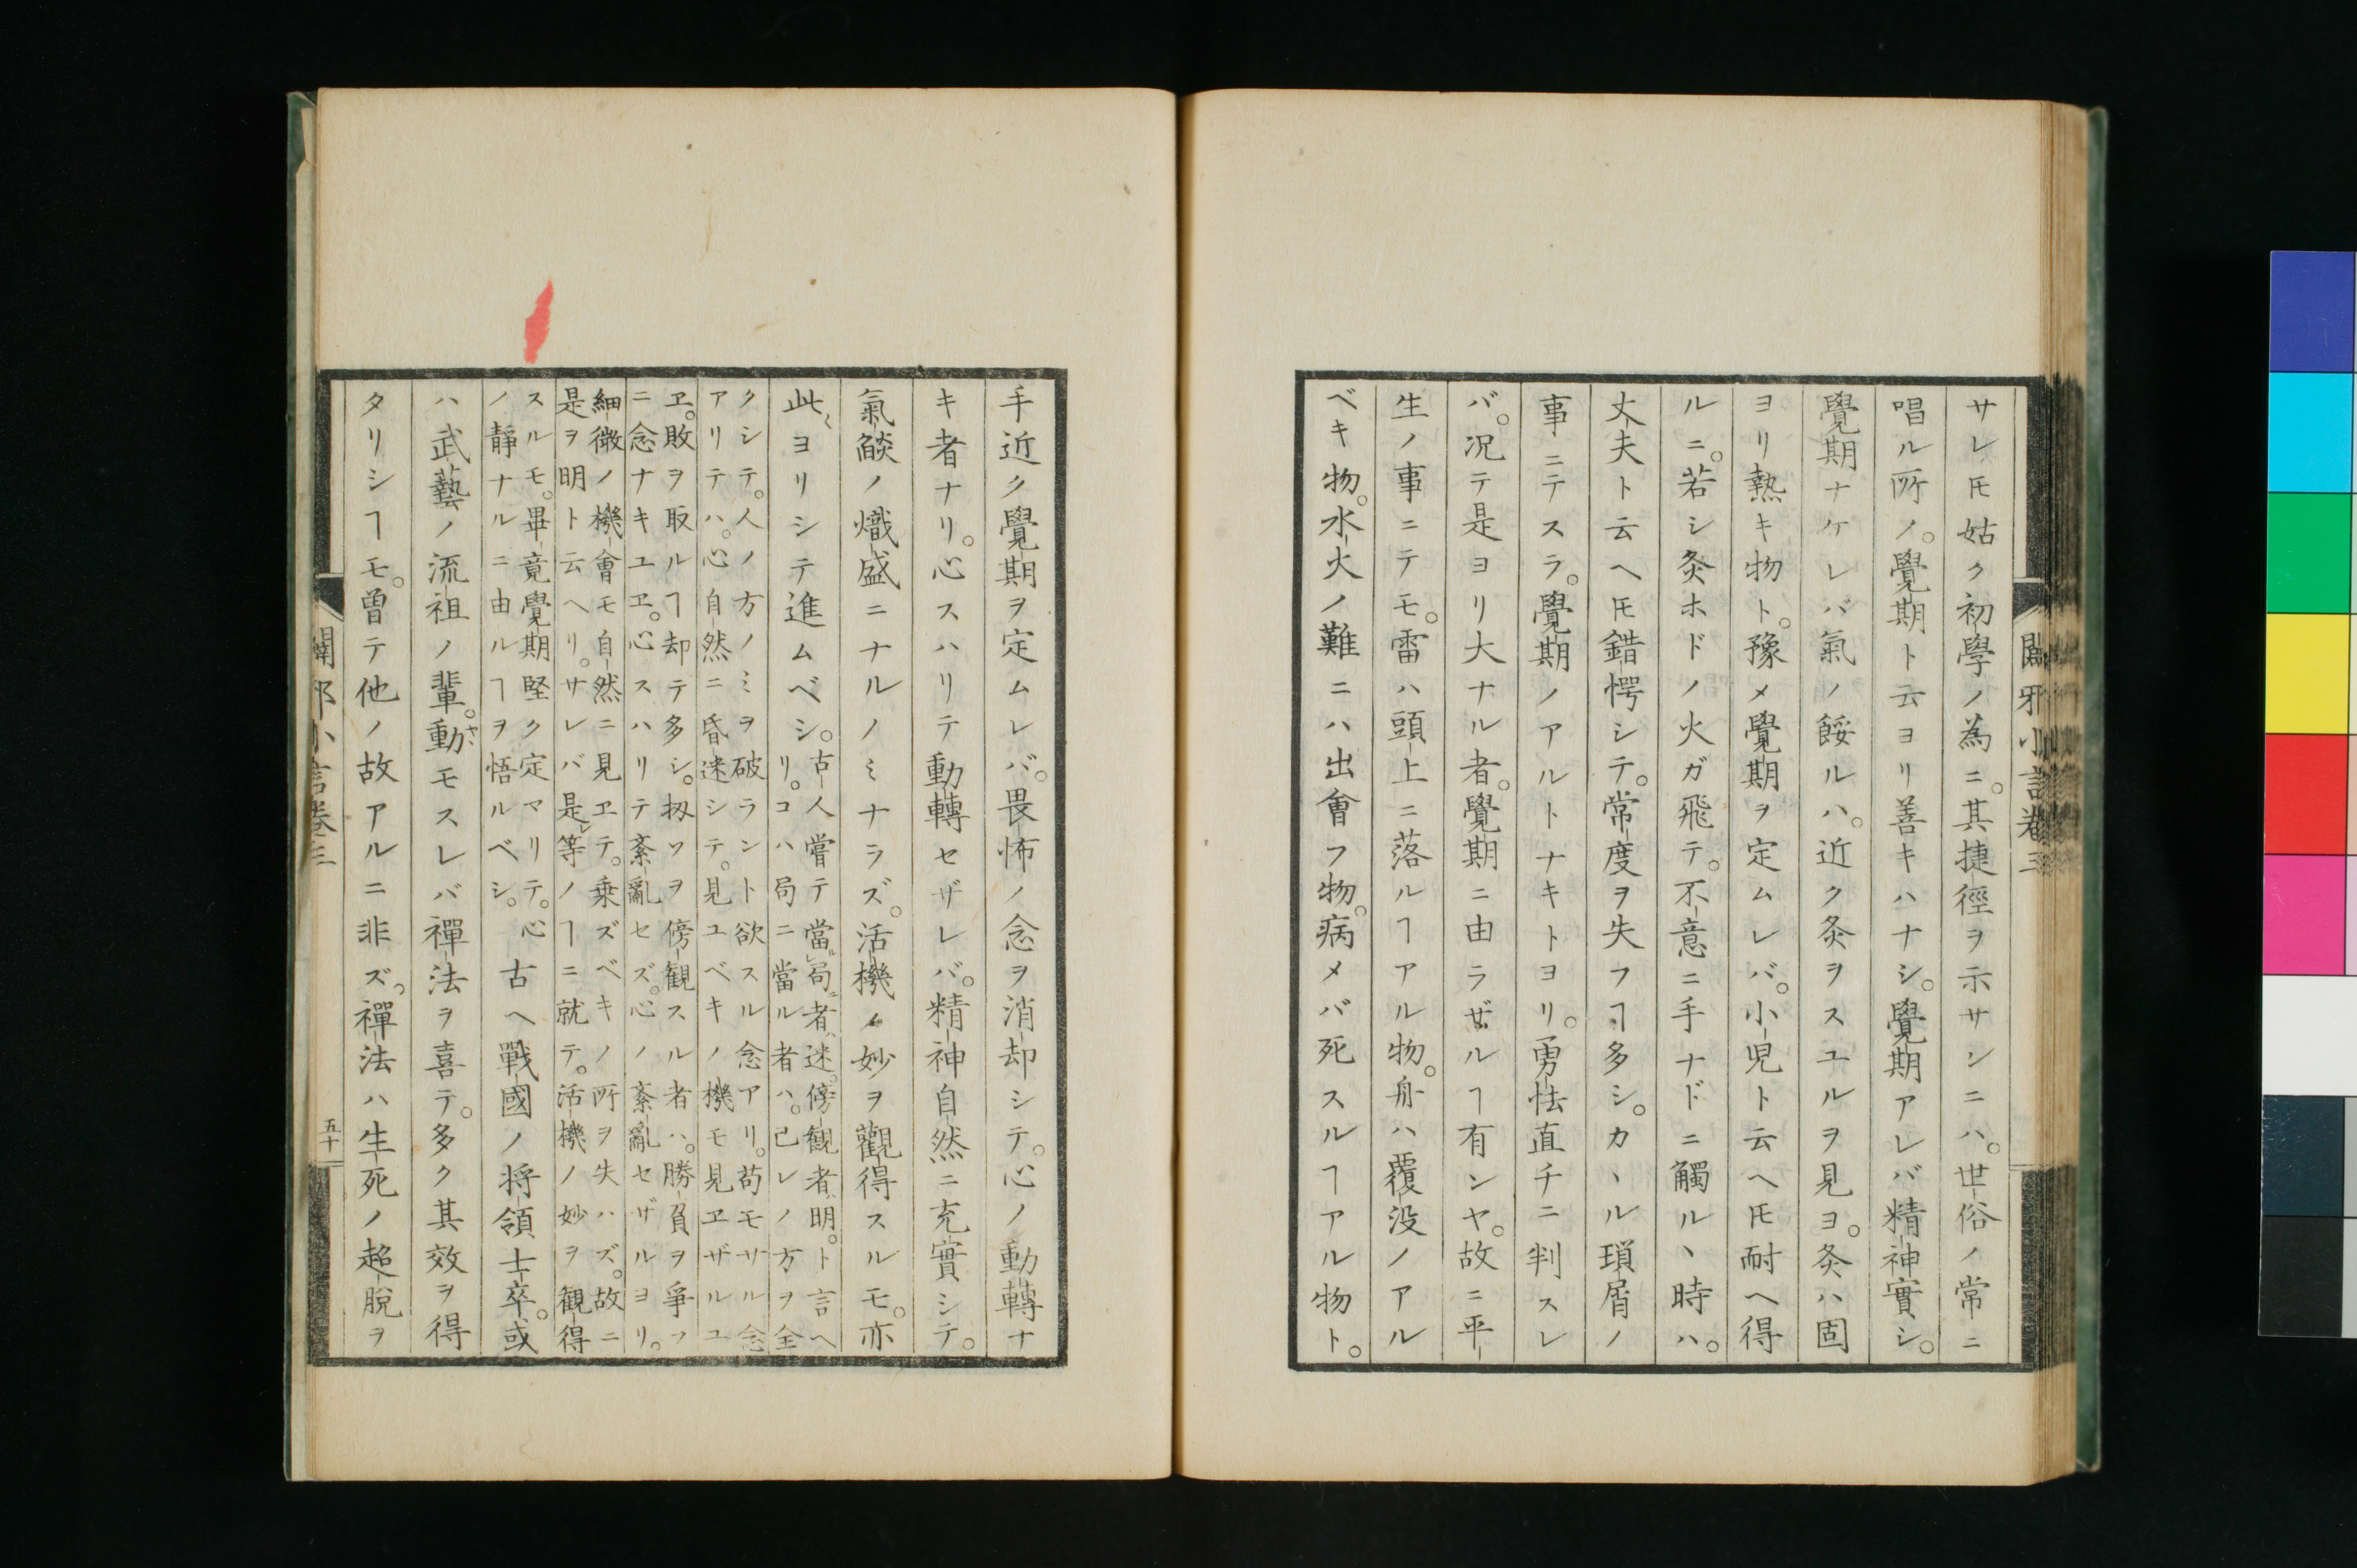 サレ𪜈姑ク初學ノ為ニ。其捷徑ヲ示サンニハ。世俗ノ常ニ
唱ル所ノ。覺期ト云ヨリ善キハナシ。覺期アレバ精神實シ。
覺期ナケレバ氣ノ餒ルハ。近ク灸ヲスユルヲ見ヨ。灸ハ固
ヨリ熱キ物ト。豫メ覺期ヲ定ムレバ。小児ト云ヘ𪜈耐ヘ得
ルニ。若シ灸ホドノ火ガ飛テ。不意ニ手ナドニ觸ルヽ時ハ。
丈夫ト云ヘ𪜈錯愕シテ。常度ヲ失フヿ多シ。カヽル瑣屑ノ
事ニテスラ。覺期ノアルトナキトヨリ。勇怯直チニ判スレ
バ。况テ是ヨリ大ナル者。覺期ニ由ラザルヿ有ンヤ。故ニ平
生ノ事ニテモ。雷ハ頭上ニ落ルヿアル物。舟ハ覆没ノアル
ベキ物。水火ノ難ニハ出會フ物。病メバ死スルヿアル物ト。
闢邪小言卷三
手近ク覺期ヲ定ムレバ。畏怖ノ念ヲ消却シテ。心ノ動轉ナ
キ者ナリ。心スハリテ動轉セザレバ。精神自然ニ充實シテ。
氣燄ノ熾盛ニナルノミナラズ。活機ノ妙ヲ觀得スルモ。亦
此ヨリシテ進ムベシ。
古人嘗テ當局者迷。傍観者明。ト言ヘ
リ。コハ局ニ當ル者ハ。己レノ方ヲ全
クシテ。人ノ方ノミヲ破ラント欲スル念アリ。苟モサル念
アリテハ。心自然ニ昏迷シテ。見ユベキノ機モ見ヱザルユ
ヱ。敗ヲ取ルヿ却テ多シ。扨ソヲ傍観スル者ハ。勝負ヲ爭フ
ニ念ナキユヱ。心スハリテ紊亂セズ。心ノ紊亂セザルヨリ。
細微ノ機會モ自然ニ見ヱテ。乗ズベキノ所ヲ失ハズ。故ニ
是ヲ明ト云ヘリ。サレバ是等ノヿニ就テ。活機ノ妙ヲ観得
スルモ。畢竟覺期堅ク定マリテ。心
ノ靜ナルニ由ルヿヲ悟ルベシ。
古ヘ戰國ノ将領士卒。或
ハ武藝ノ流祖ノ輩。動モスレバ禪法ヲ喜テ。多ク其效ヲ得
タリシヿモ。曽テ他ノ故アルニ非ズ。禪法ハ生死ノ超脱ヲ
闢邪小言卷三
五十